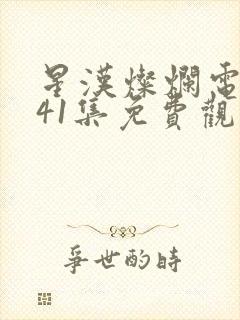 星漢燦爛電
41集免費觀
爭世的時